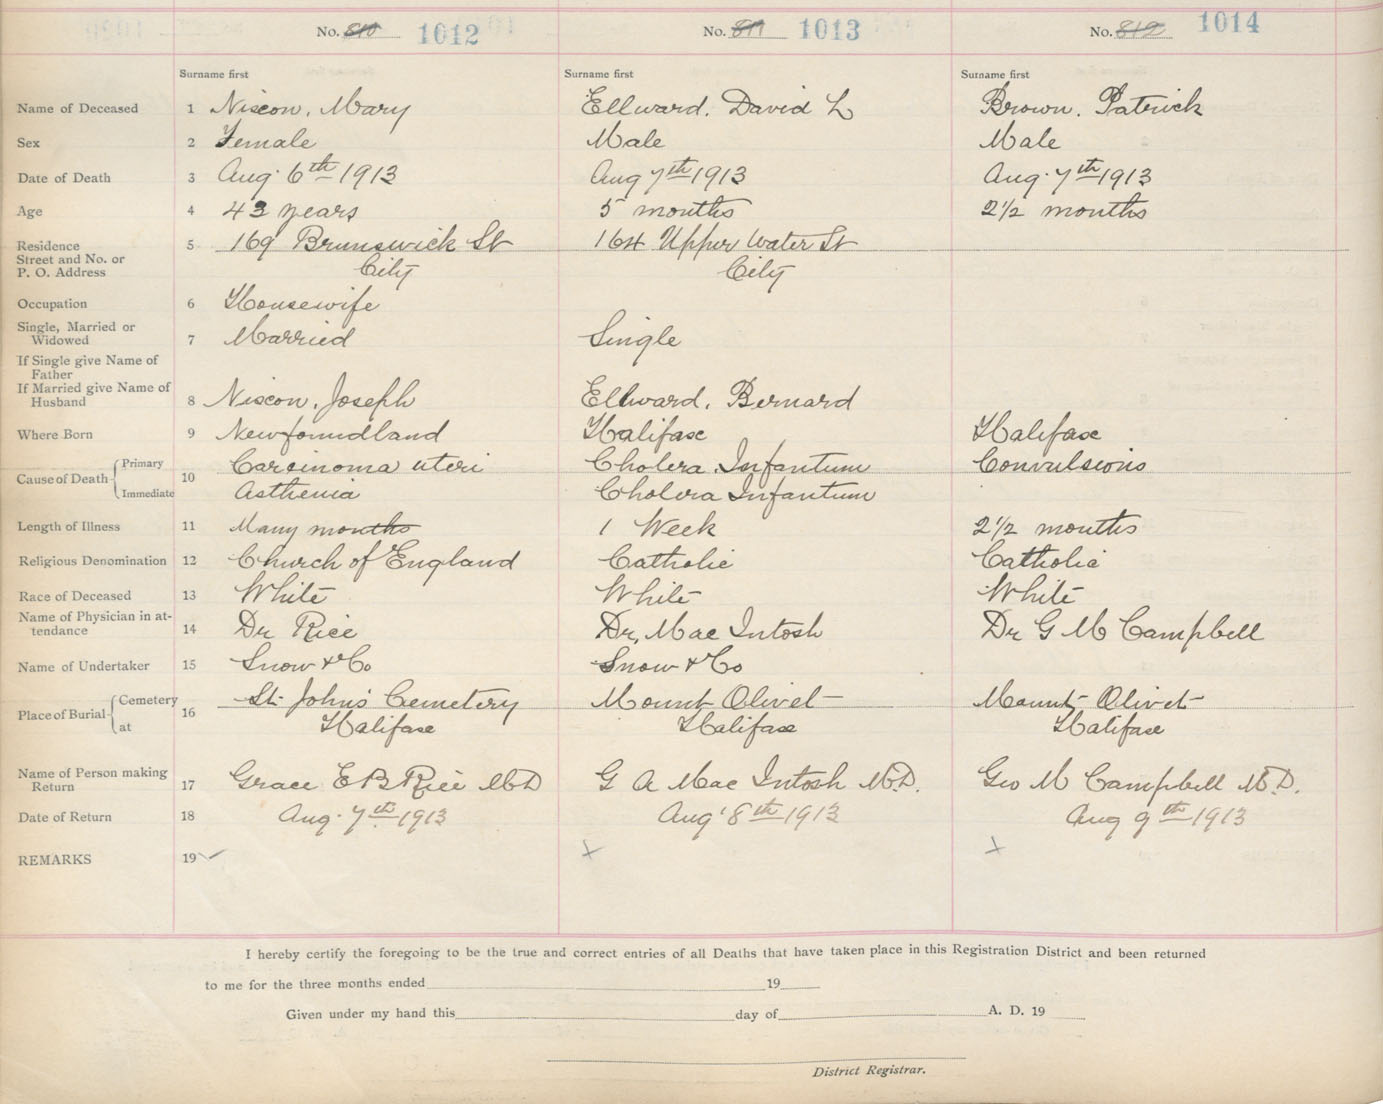 No. 810 1012 No. 811 1013 No. 812 1014
Surname first Surname first Surname first
Name of Deceased 1 Nixon, Mary Ellward. David L Brown. Patrick
Sex 2 Female Male Male
Date of Death 3 Aug. 6th 1913 Aug 7th 1913 Aug. 7th 1913
Age 4 43 years 5 months 2 1/2 months
Residence 5 169 Brunswick St 164 Upper Water St
Street and No. or
P. O. Address City City
Occupation 6 Housewife
Single, Married or
Widowed 7 Married Single
If Single give Name of
Father
If Married give Name of
Husband 8 Nixon, Joseph Ellward, Bernard
Where Born 9 Newfoundland Halifax Halifax
Cause of Death Primary 10 Carcinoma uteri Cholera Infantum Convulsions
Immediate Asthenia Cholera Infantum
Length of Illness 11 Many months 1 Week 2 1/2 months
Religious Denomination 12 Church of England Catholic Catholic
Race of Deceased 13 White White White
Name of Physician in at-
tendance 14 Dr Rice Dr. Mac Intosh Dr G M Campbell
Name of Undertaker 15 Snow & Co Snow & Co
Place of Burial Cemetery 16 St. Johns Cemetery Mount Olivet Mount Olivet
at Halifax Halifax Halifax
Name of Person making
Return 17 Grace E B Rice M D G A Mac Intosh M.D. Geo M Campbell M.D.
Date of Return 18 Aug. 7th 1913 Aug 8th 1913 Aug 9th 1913
REMARKS 19 ✓ x x
I hereby certify the foregoing to be the true and correct entries of all Deaths that have taken place in this Registration District and been returned
to me for the three months ended 19
Given under my hand this day of A. D. 19
District Registrar.